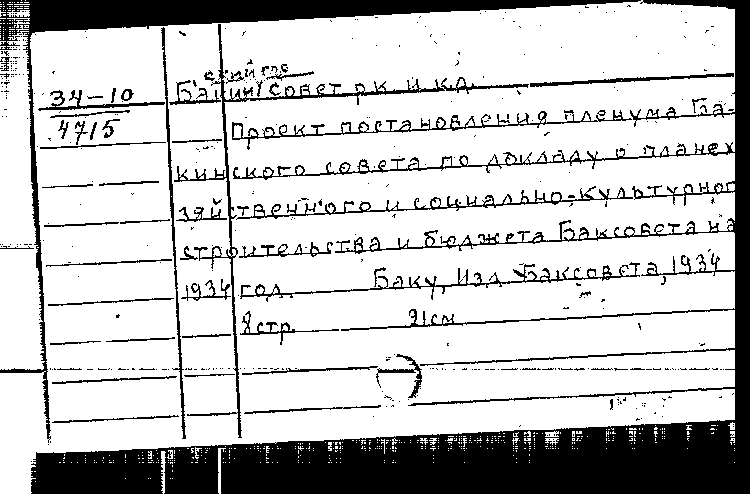 34-10
4715
Бакин совет рк и кд
Проект постановления пленума Ба-
кинского совета по докладу о планех
зяйственного и социально-культурног
строительства и бюджета Баксовета на
1934 год. Баку, Изд Баксовета, 1934
8 стр. 21см